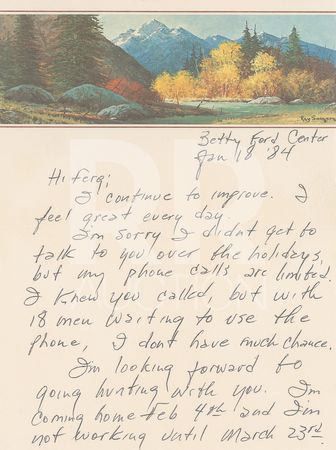 Betty Ford Center
Jan 18 '84
Hi Ferg;
I continue to improve. I
feel great every day.
I'm sorry I didn't get to
talk to you over the holidays,
but my phone calls are limited.
I knew you called, but with
18 men waiting to use the
phone, I dont have much chance.
I'm looking forward to
going hunting with you. I'm
coming home Feb 4th and I'm
not working until March 23rd